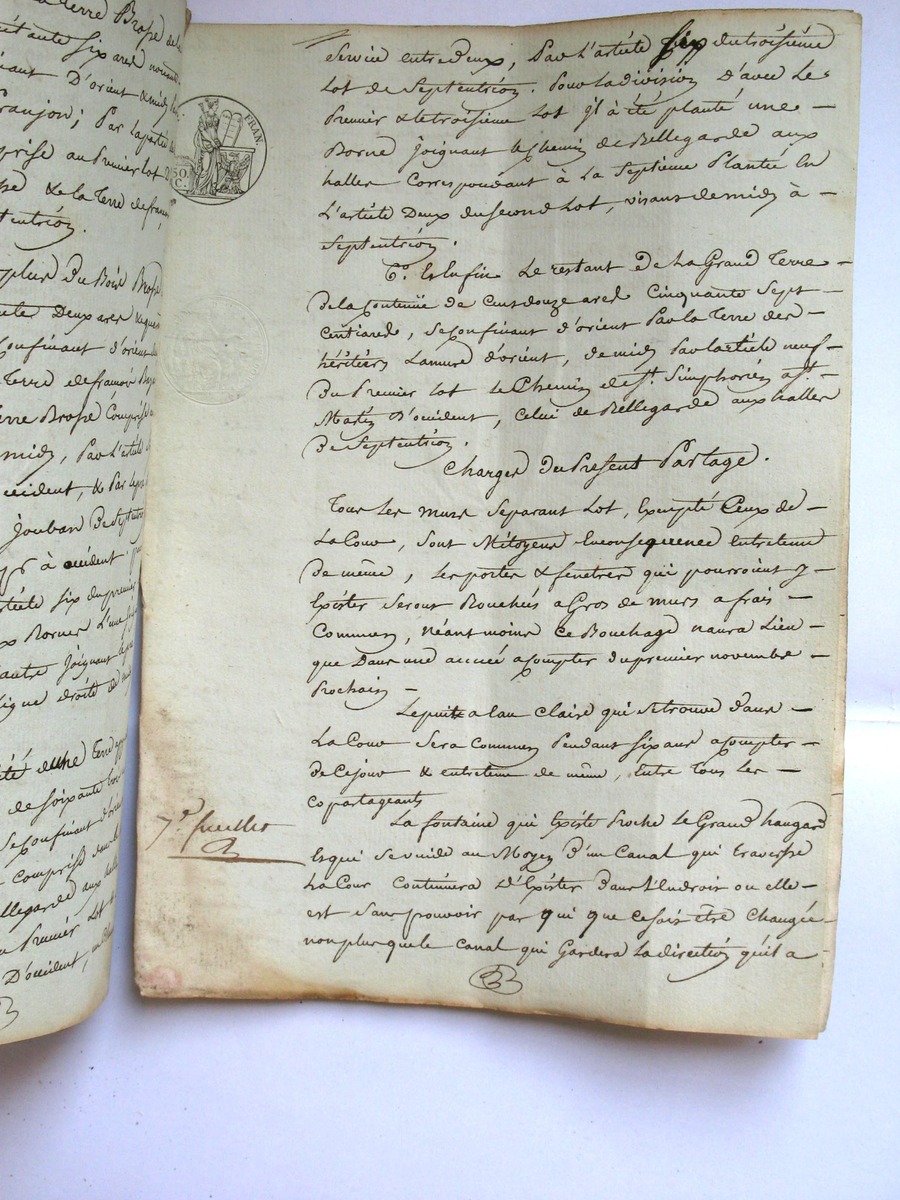 la Terre Brosse de la
six ares
D'orient & midi
Franjon; Par l'article
comprise au Premier lot
& de la Terre de
Septentrion.
plus du Bois Brosse
Deux ares
Confinant d'orient
Terre de francois
Terre Brosse Comprise
midy, Par l'article
occident, & Par
Jouban De Septentrion
à occident
article six du premier
Bornes L'une
autre joignant
ligne droite de
Terre
de soixante
Se Confinant d'orient
Comprise dans le
Bellegarde aux halles
Premier Lot
D'occident,
FRAN.
50.
C.
7e. feuillet
Service entredeux, Par l'article six du troisieme
Lot de Septentrion. Pour la division d'avec Le
Premier & le troisieme Lot il à été planté une
Borne Joignant le Chemin de Bellegarde aux
halles Correspondant à La Septieme Plantée En
L'article Deux du Second Lot, visant de midi à
Septentrion.
Et Enfin Le restant de La Grand Terre
De la Contenüe de Cent douze ares Cinquante Sept
Centiares, Se Confinant d'orient Par la Terre des
héritiers Lamure d'orient, de midy Par l'article neuf
Du Premier Lot le Chemin de St. Simphorien a St.
Martin D'occident, Celui de Bellegarde aux halles
De Septentrion.
Charges Du Present Partage.
Tous Les murs Separant Lot, Excepté Ceux de
La Cour, Sont Mitoyens En consequence Entretenu
De même, Les portes & fenetres qui pourroient y
Exister Seront Bouchés a Gros de murs a frais
Communs, Néant moins Ce Bouchage n'aura Lieu
que Dans une année a compter du premier novembre
Prochain
Le puit a l'au Claire qui Se trouve dans
La Cour Sera Commun Pendant Six ans a compter
de Ce jour & entretenu de même, Entre Tous Les
Copartageants
La fontaine qui Existe Proche Le Grand hangard
Et qui Se vuide au Moyen D'un Canal qui traverse
La Cour Continuera D'Exister Dans L'Endroit ou elle
est Sans pouvoir par qui que ce soit être Changée
non plus que le Canal qui Gardera La direction qu'il a